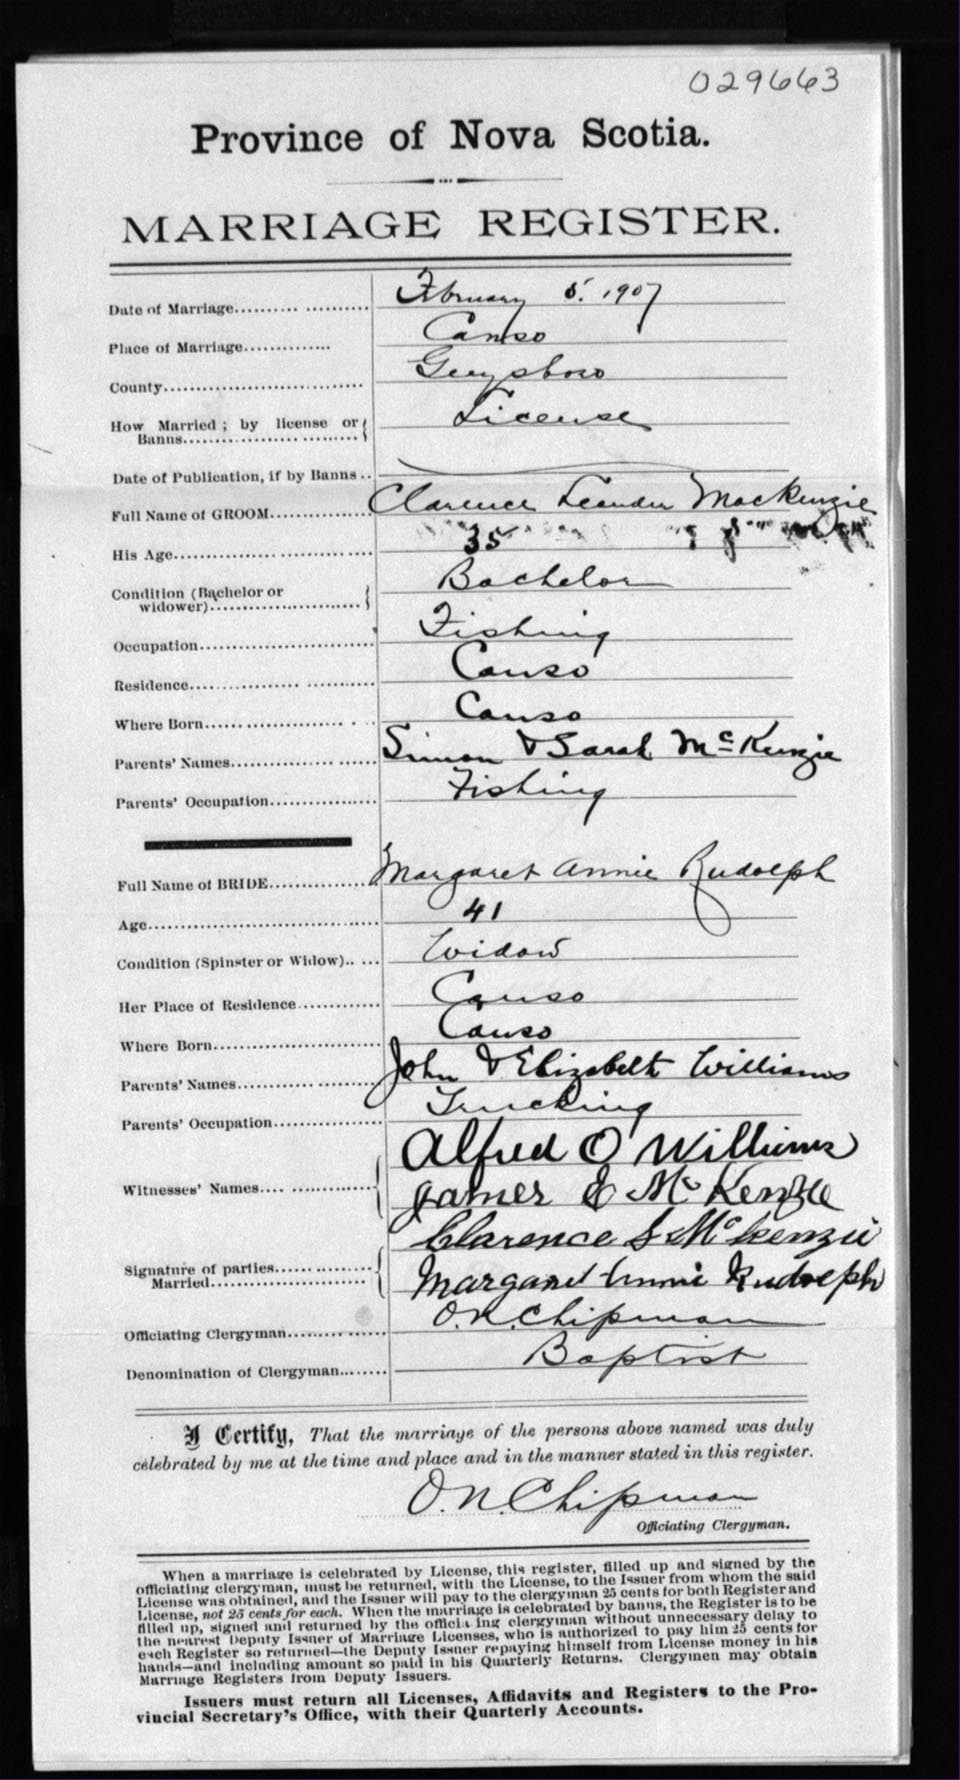 029663
Province of Nova Scotia.
MARRIAGE REGISTER.
Date of Marriage.......... February 5. 1907
Place of Marriage.......... Canso
County.......... Guysboro
How Married; by license or Banns.......... License
Date of Publication, if by Banns ..
Full Name of GROOM.......... Clarence Leander MacKenzie
His Age.......... 35
Condition (Bachelor or widower).......... Bachelor
Occupation.......... Fishing
Residence.......... Canso
Where Born.......... Canso
Parents' Names.......... Simon & Sarah McKenzie
Parents' Occupation.......... Fishing
Full Name of BRIDE.......... Margaret Annie Rudolph
Age.......... 41
Condition (Spinster or Widow).. .... Widow
Her Place of Residence.......... Canso
Where Born.......... Canso
Parents' Names.......... John & Elizabeth Williams
Parents' Occupation.......... Trucking
Witnesses' Names.......... Alfred O Williams
James E McKenzie
Signature of parties Married.......... Clarence L McKenzie
Margaret Annie Rudolph
Officiating Clergyman.......... O.N. Chipman
Denomination of Clergyman.......... Baptist
I Certify, That the marriage of the persons above named was duly
celebrated by me at the time and place and in the manner stated in this register.
O.N. Chipman
Officiating Clergyman.
When a marriage is celebrated by License, this register, filled up and signed by the
officiating clergyman, must be returned, with the License, to the Issuer from whom the said
License was obtained, and the Issuer will pay to the clergyman 25 cents for both Register and
License, not 25 cents for each. When the marriage is celebrated by banns, the Register is to be
filled up, signed and returned by the officiating clergyman without unnecessary delay to
the nearest Deputy Issuer of Marriage Licenses, who is authorized to pay him 25 cents for
each Register so returned—the Deputy Issuer repaying himself from License money in his
hands—and including amount so paid in his Quarterly Returns. Clergymen may obtain
Marriage Registers from Deputy Issuers.
Issuers must return all Licenses, Affidavits and Registers to the Pro-
vincial Secretary's Office, with their Quarterly Accounts.